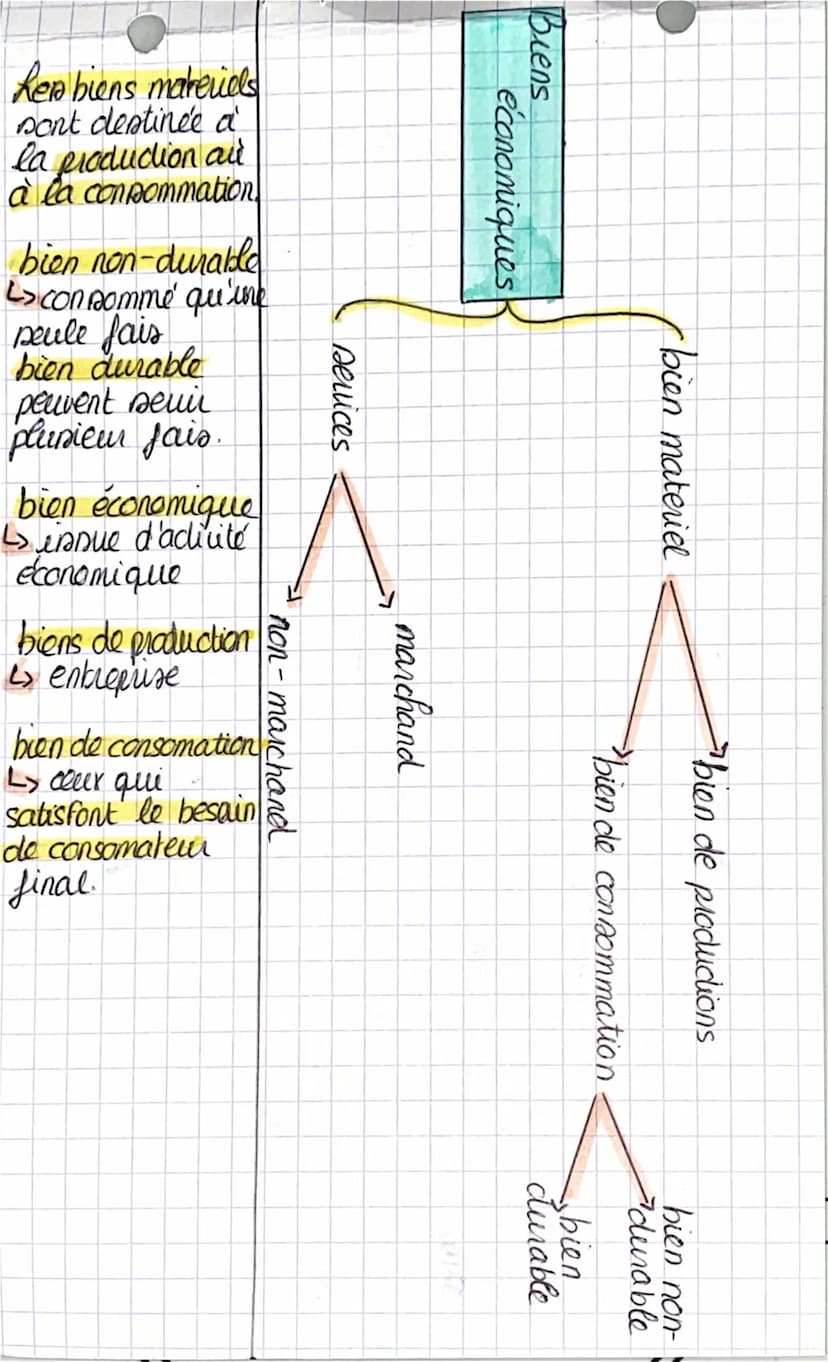 Les biens materiels
sont destinée à
la production ou
à la consommation.
bien non-durable
↳ consommé qu'une
seule fois
bien durable
peuvent servir
plusieur fois.
bien économique
↳ issue d'activité
économique
biens de production
↳ entreprise
bien de consomation
↳ ceux qui
satisfont le besoin
de consomateur
final.
Biens
économiques
bien materiel
bien de productions
bien de consommation
bien non-
durable
bien
durable
services
marchand
non-marchand